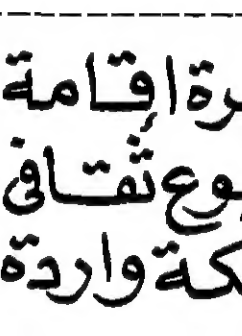 رة إقامة
وع ثقافى
كة واردة